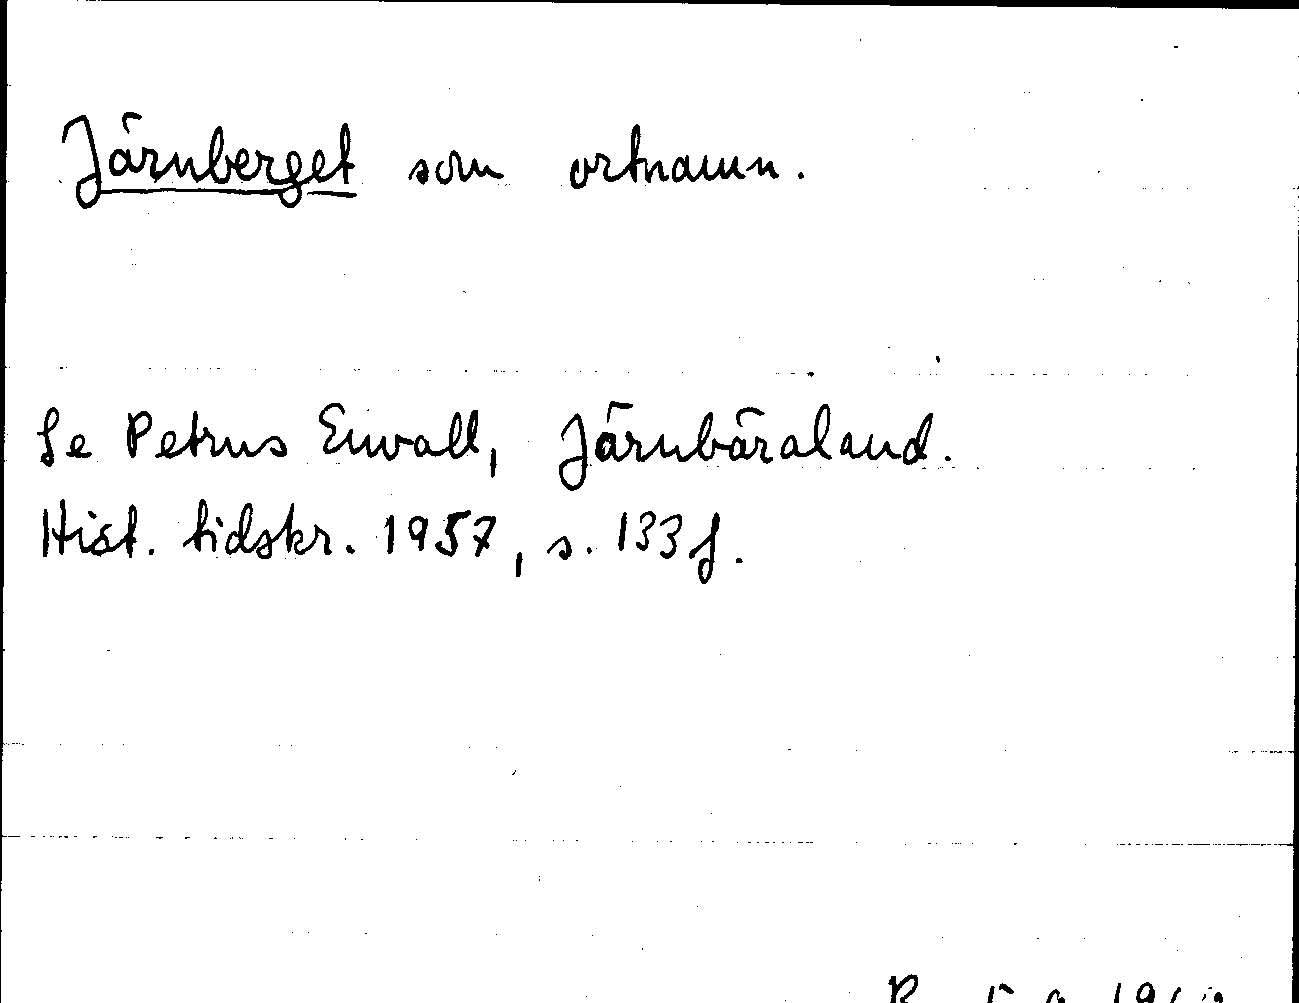 Järnberget som ortnamn.
Se Petrus Envall, Järnbäraland.
Hist. tidskr. 1957, s. 133 f.